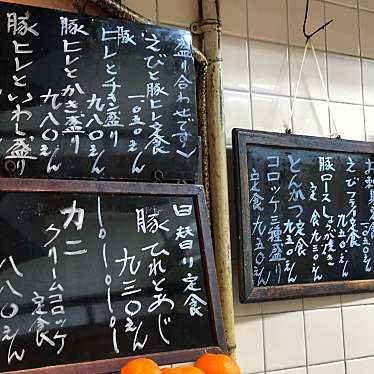 盛り合わせです
えびと豚ヒレ定食
一〇五〇えん
豚ヒレとチキ盛り
九八〇えん
豚ヒレとかき盛り
九八〇えん
豚ヒレといわし盛り
日替り定食
豚ひれとあじ
九三〇えん
カニクリームコロッケ
定食
八八〇えん
えびフライ定食
九五〇えん
豚ロースしょうが焼き
定食 九五〇えん
とんかつ定食
九五〇えん
コロッケ三種盛り
定食 九五〇えん